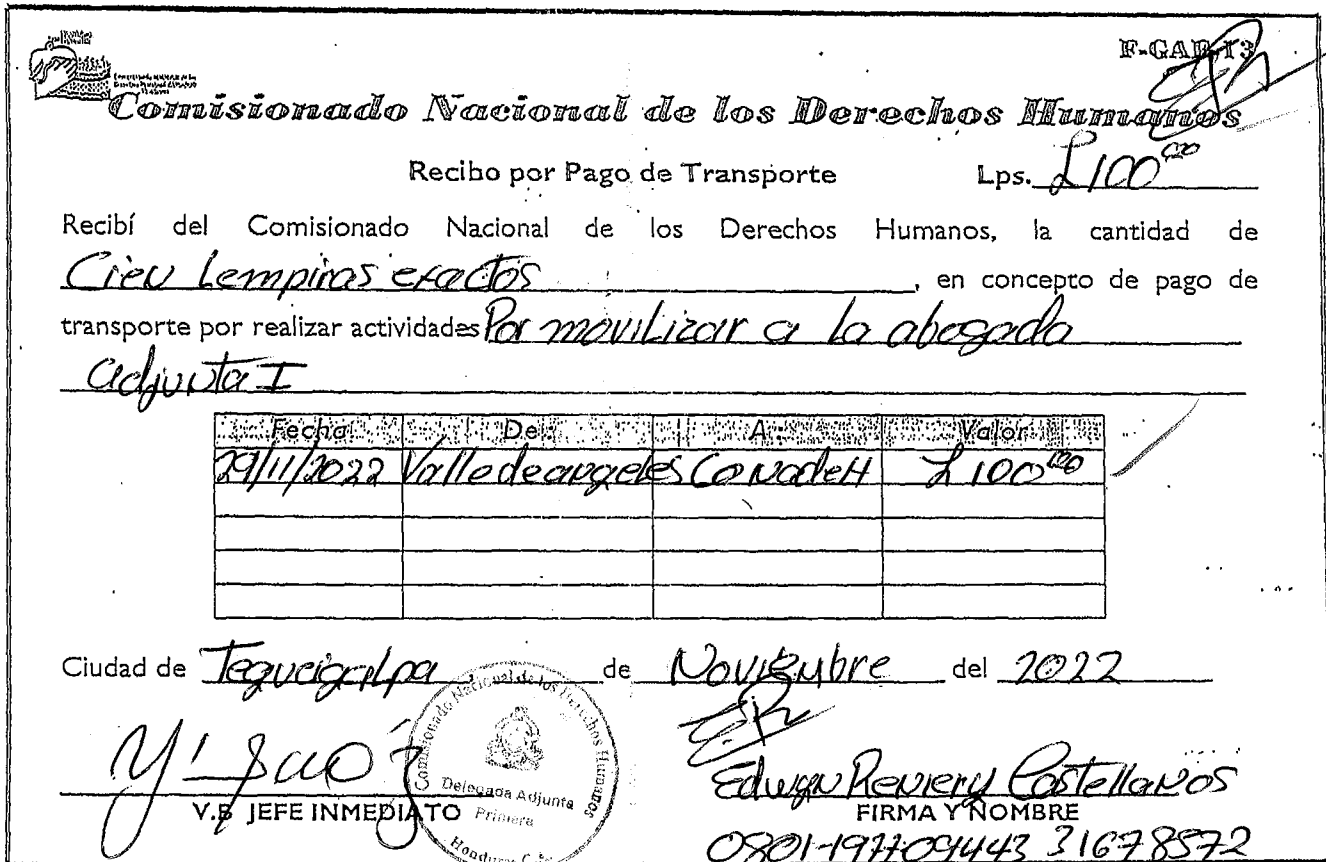 F-GAF-13
Comisionado Nacional de los Derechos Humanos
Recibo por Pago de Transporte Lps. L 100.00
Recibí del Comisionado Nacional de los Derechos Humanos, la cantidad de
Cien Lempiras exactos, en concepto de pago de
transporte por realizar actividades Por movilizar a la abogada
adjunta I
Fecha De A Valor
29/11/2022 Valle de angeles CoNadeH L 100.00
Ciudad de Tegucigalpa de Noviembre del 2022
Comisionado Nacional de los Derechos Humanos
Delegada Adjunta
Primera
Honduras C.A.
Edwin Reniery Castellanos
V.B JEFE INMEDIATO FIRMA Y NOMBRE
0801-1977-09443 31678572